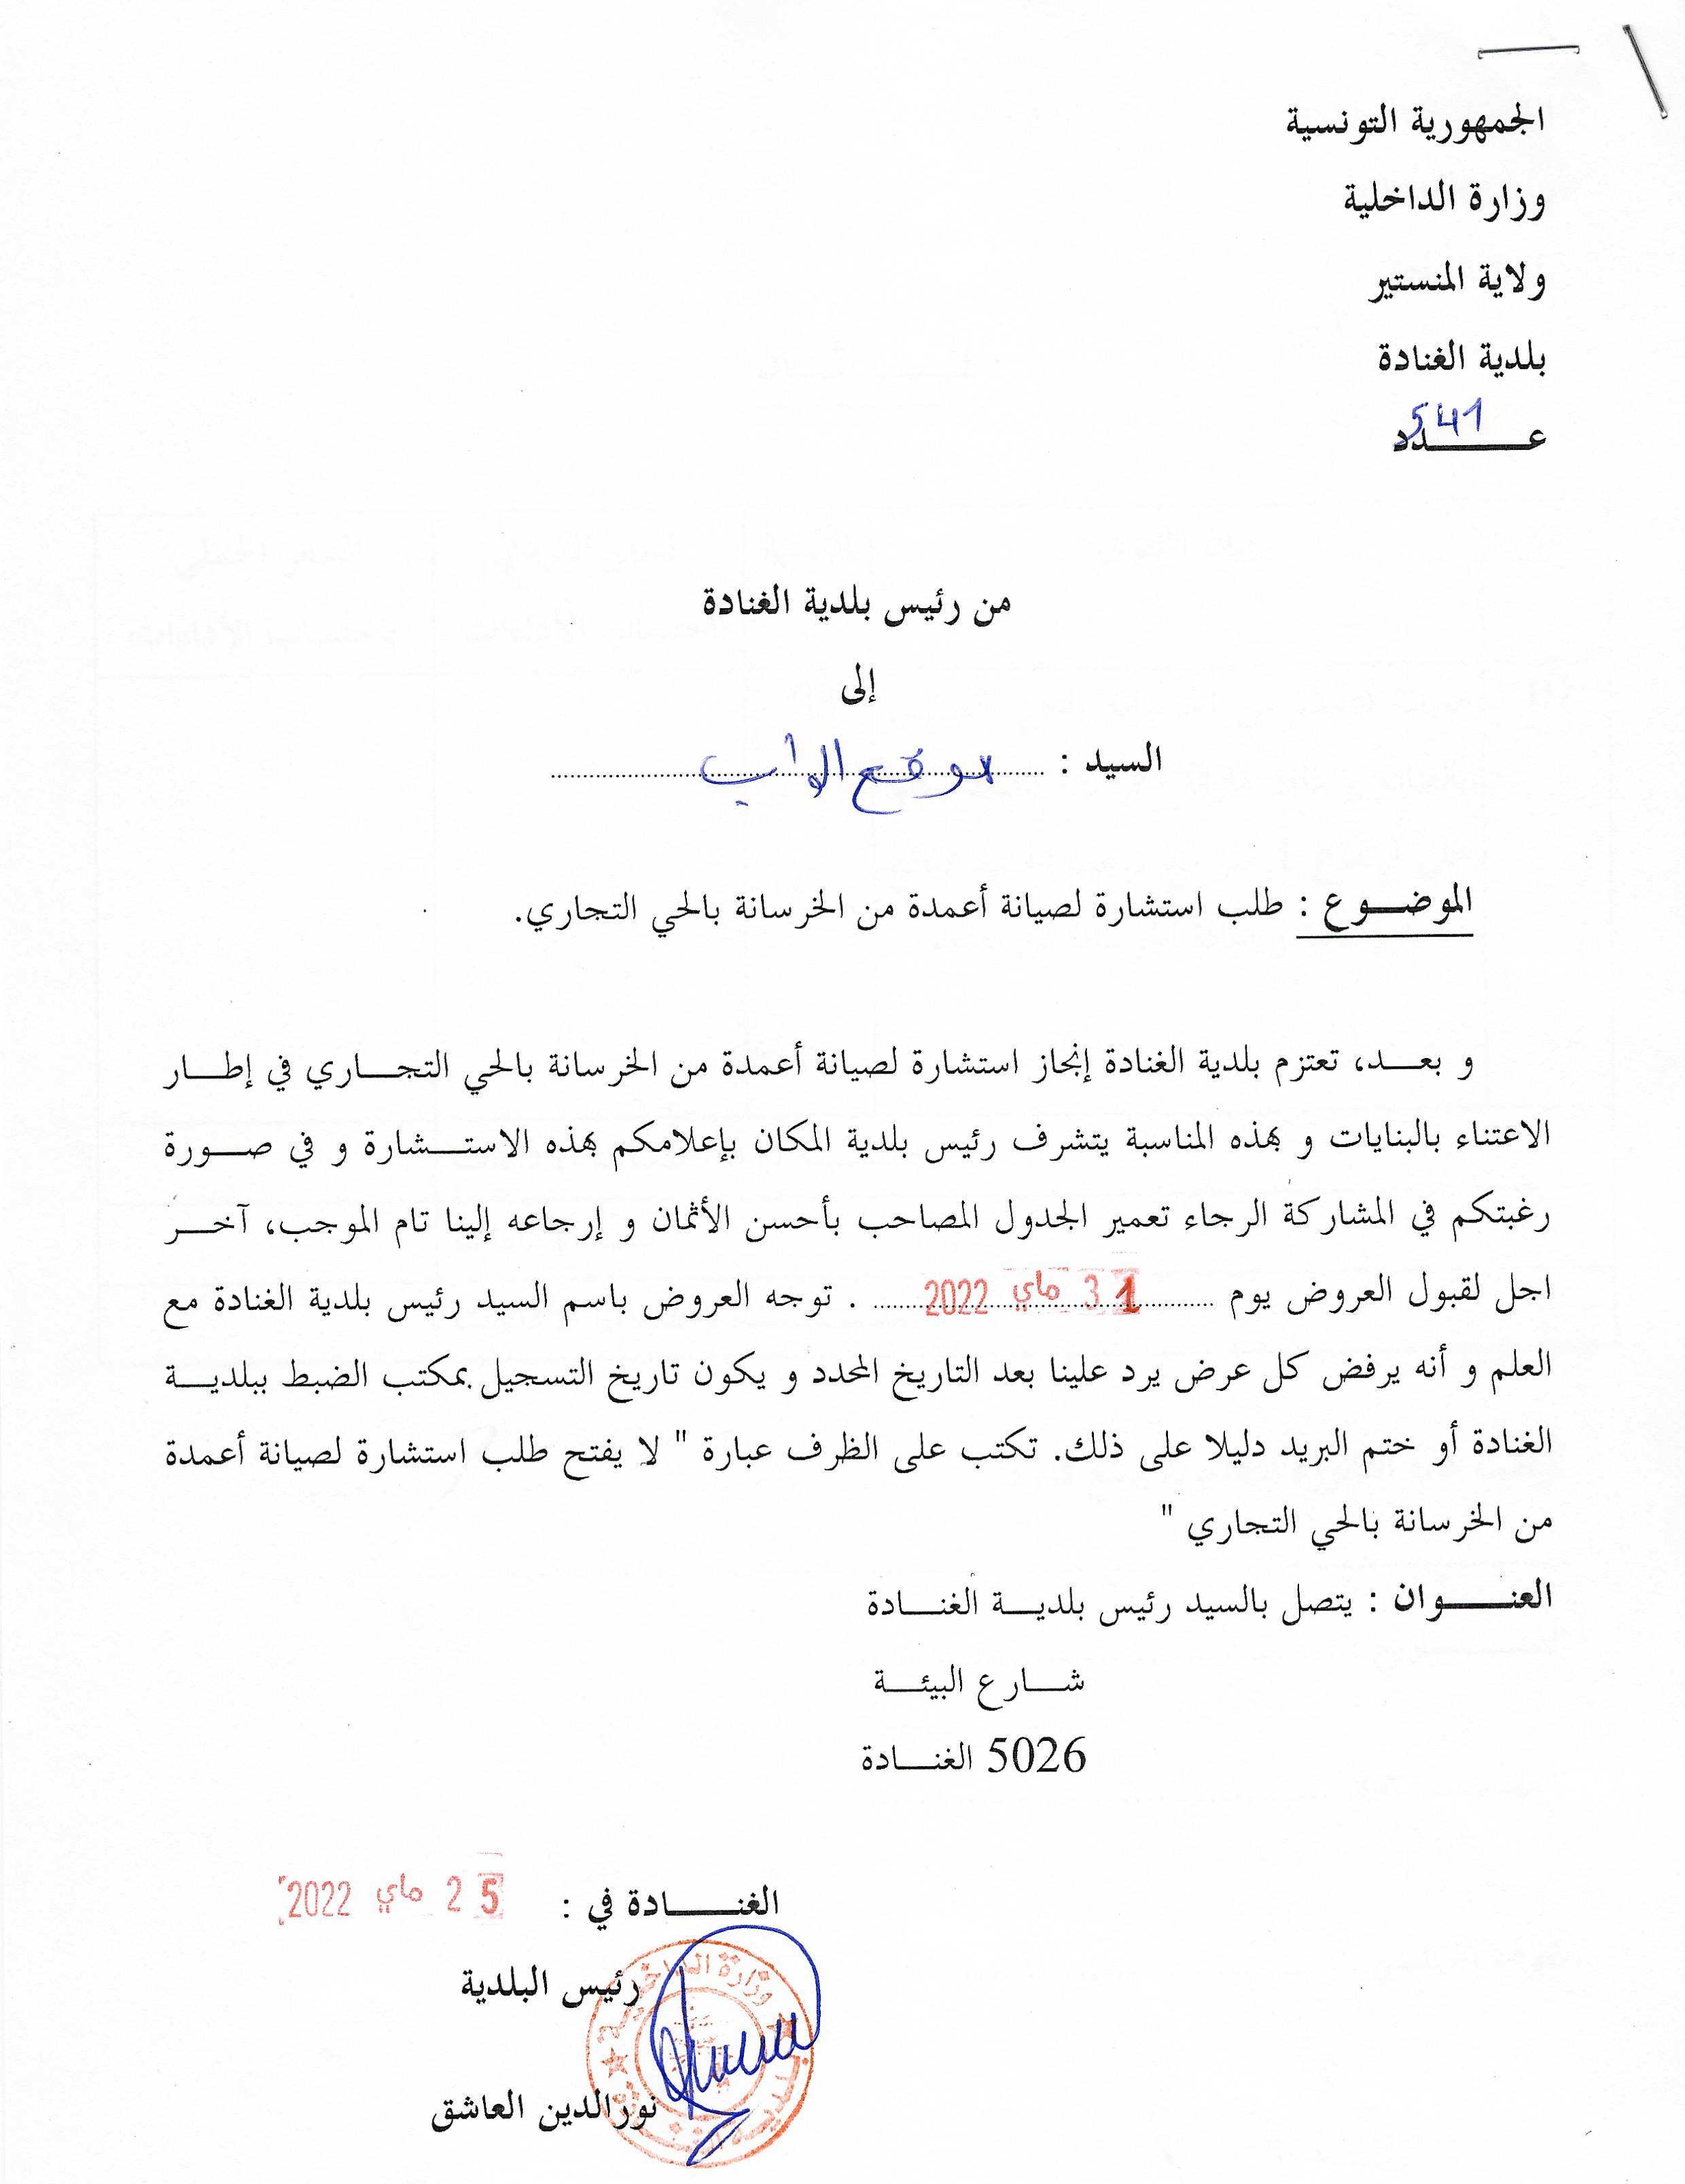 الجمهورية التونسية
وزارة الداخلية
ولاية المنستير
بلدية الغنادة
عـــــدد 541
من رئيس بلدية الغنادة
إلى
السيد : موقع الواب
الموضـــوع : طلب استشارة لصيانة أعمدة من الخرسانة بالحي التجاري.
و بعـــد، تعتزم بلدية الغنادة إنجاز استشارة لصيانة أعمدة من الخرسانة بالحي التجـــاري في إطـــار
الاعتناء بالبنايات و بهذه المناسبة يتشرف رئيس بلدية المكان بإعلامكم بهذه الاستـــشارة و في صـــورة
رغبتكم في المشاركة الرجاء تعمير الجدول المصاحب بأحسن الأثمان و إرجاعه إلينا تام الموجب، آخـــر
اجل لقبول العروض يوم 31 ماي 2022 . توجه العروض باسم السيد رئيس بلدية الغنادة مع
العلم و أنه يرفض كل عرض يرد علينا بعد التاريخ المحدد و يكون تاريخ التسجيل بمكتب الضبط ببلديـــة
الغنادة أو ختم البريد دليلا على ذلك. تكتب على الظرف عبارة " لا يفتح طلب استشارة لصيانة أعمدة
من الخرسانة بالحي التجاري "
العنـــــوان : يتصل بالسيد رئيس بلديـــة الغنـــادة
شـــارع البيئـــة
5026 الغنـــادة
الغنـــــادة في : 25 ماي 2022
رئيس البلدية
وزارة الداخلية
نور الدين العاشق